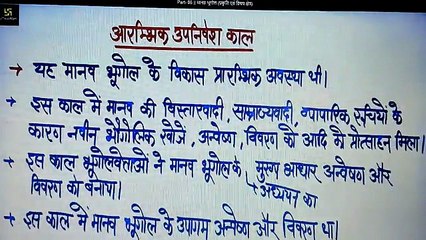 Part- 86 || मानव भूगोल (प्रकृति एवं विषय क्षेत्र)
आरम्भिक उपनिवेश काल
→ यह मानव भूगोल के विकास प्रारम्भिक अवस्था थी।
→ इस काल में मानव की विस्तारवादी, साम्राज्यवादी, व्यापारिक रूचियों के
कारण नवीन भौगोलिक खोजें, अन्वेषण, विवरण को आदि को प्रोत्साहन मिला।
→ इस काल भूगोलवेत्ताओं ने मानव भूगोल के मुख्य आधार अन्वेषण और
विवरण को बनाया। ↳ अध्ययन का
→ इस काल में मानव भूगोल के उपागम अन्वेषण और विवरण था।